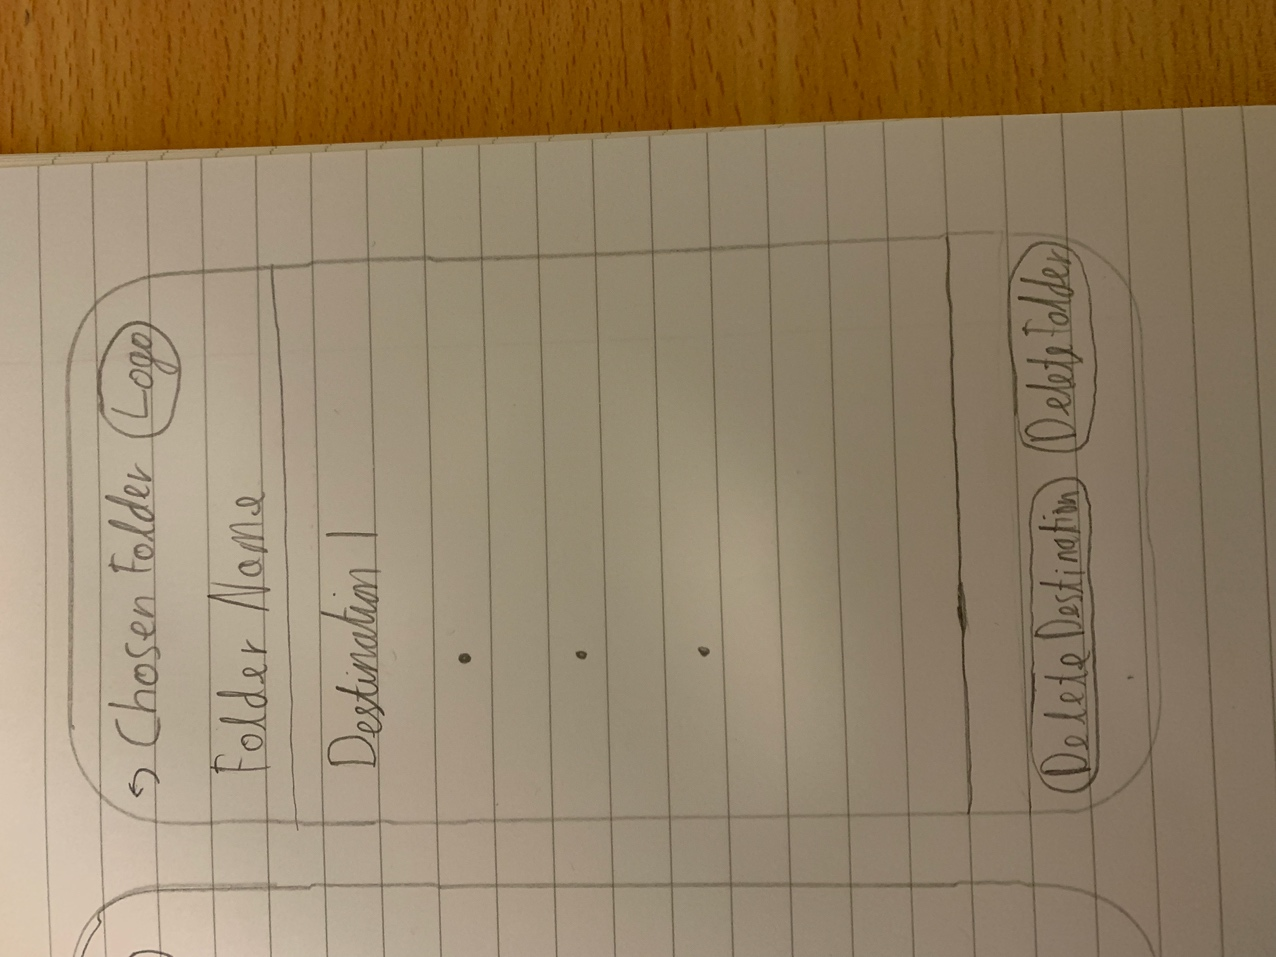 Chosen Folder Logo
Folder Name
Destination 1
Delete Destination Delete Folder